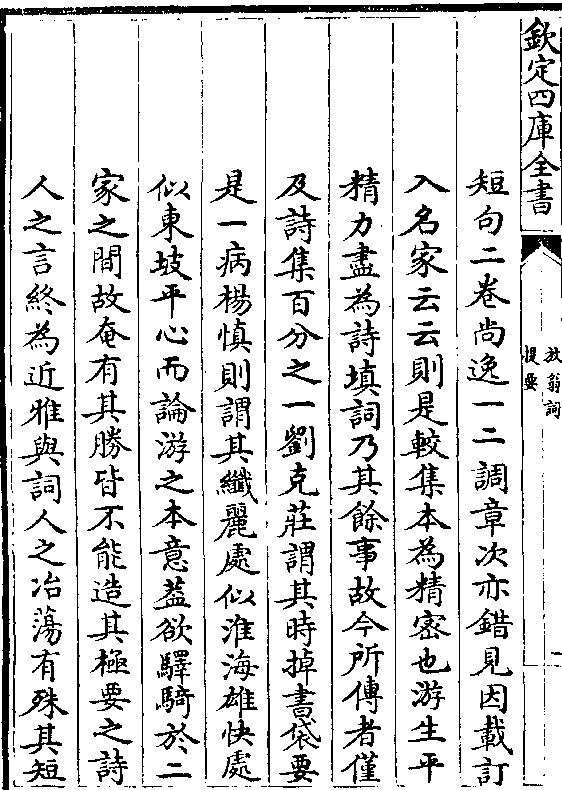 欽定四庫全書
放翁詞
提要
一
短句二卷尚逸一二調章次亦錯見因載訂
入名家云云則是較集本為精密也游生平
精力盡為詩填詞乃其餘事故今所傳者僅
及詩集百分之一劉克莊謂其時掉書袋要
是一病楊慎則謂其纖麗處似淮海雄快處
似東坡平心而論游之本意葢欲驛騎於二
家之間故奄有其勝皆不能造其極要之詩
人之言終為近雅與詞人之冶蕩有殊其短